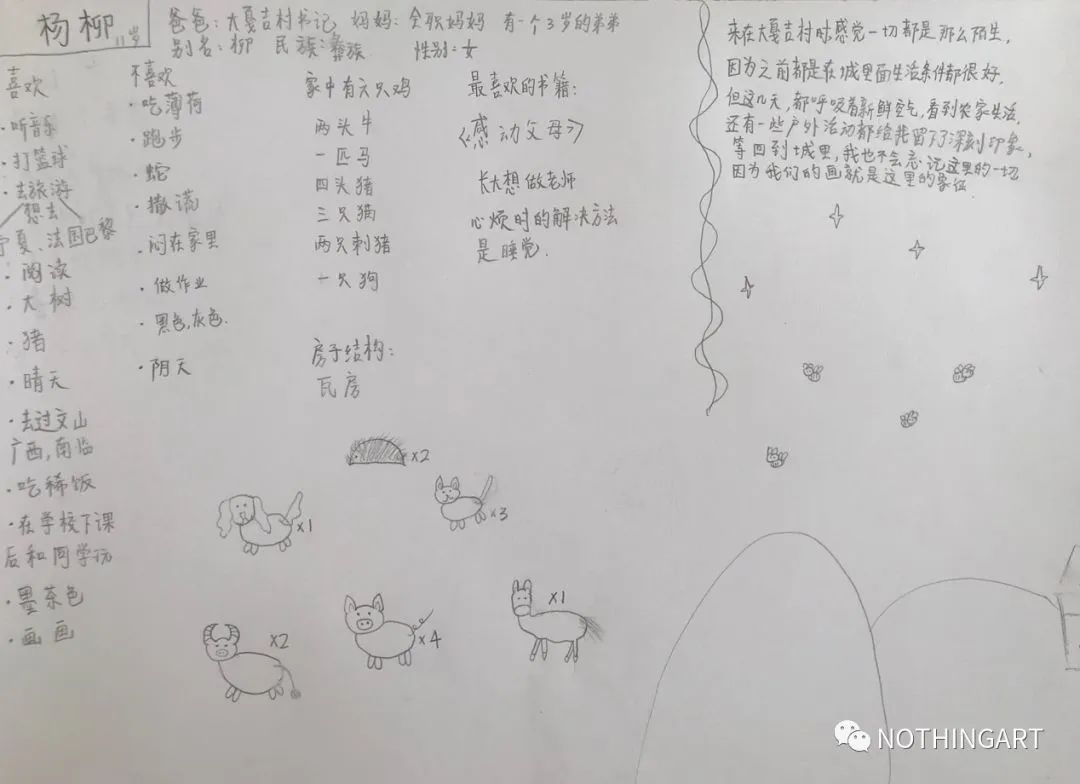 杨柳 11岁
爸爸：大戛吉村书记 妈妈：全职妈妈 有一个3岁的弟弟
别名：柳 民族：彝族 性别：女
喜欢
·听音乐
·打篮球
·去旅游
想去
宁夏、法国巴黎
·阅读
·大树
·猪
·晴天
·去过文山
广西，南临
·吃稀饭
·在学校下课
后和同学玩
·墨茶色
·画画
不喜欢
·吃薄荷
·跑步
·蛇
·撒谎
·闷在家里
·做作业
·黑色，灰色.
·阴天
家中有六只鸡
两头牛
一匹马
四头猪
三只猫
两只刺猪
一只狗
房子结构：
瓦房
最喜欢的书籍：
《感动父母》
长大想做老师
心烦时的解决方法
是睡觉.
来在大戛吉村时感觉一切都是那么陌生，
因为之前都是在城里面生活条件都很好，
但这几天，都呼吸着新鲜空气，看到农家生活，
还有一些户外活动都给我留下了深刻印象，
等回到城里，我也不会忘记这里的一切
因为我们的画就是这里的象征
×2
×1
×3
×2
×4
×1
NOTHINGART